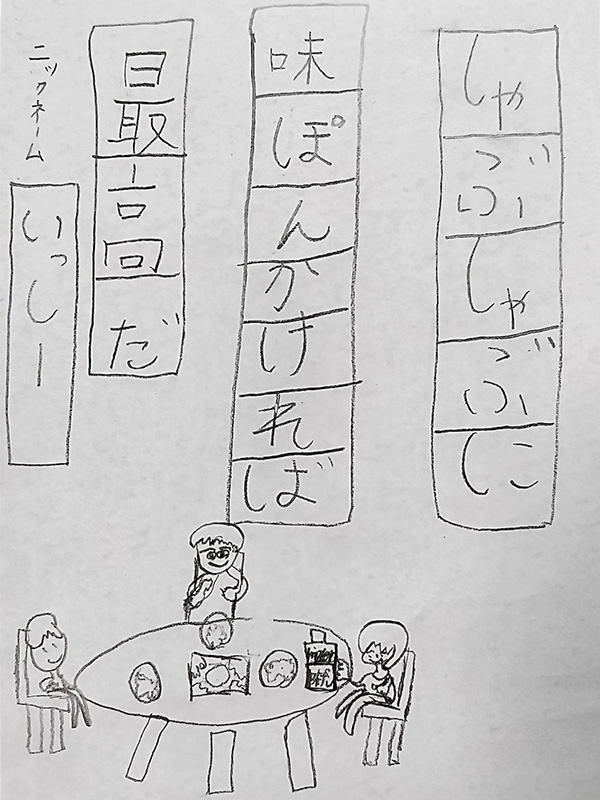 しゃぶしゃぶに
味ぽんかければ
最高だ
ニックネーム
いっしー